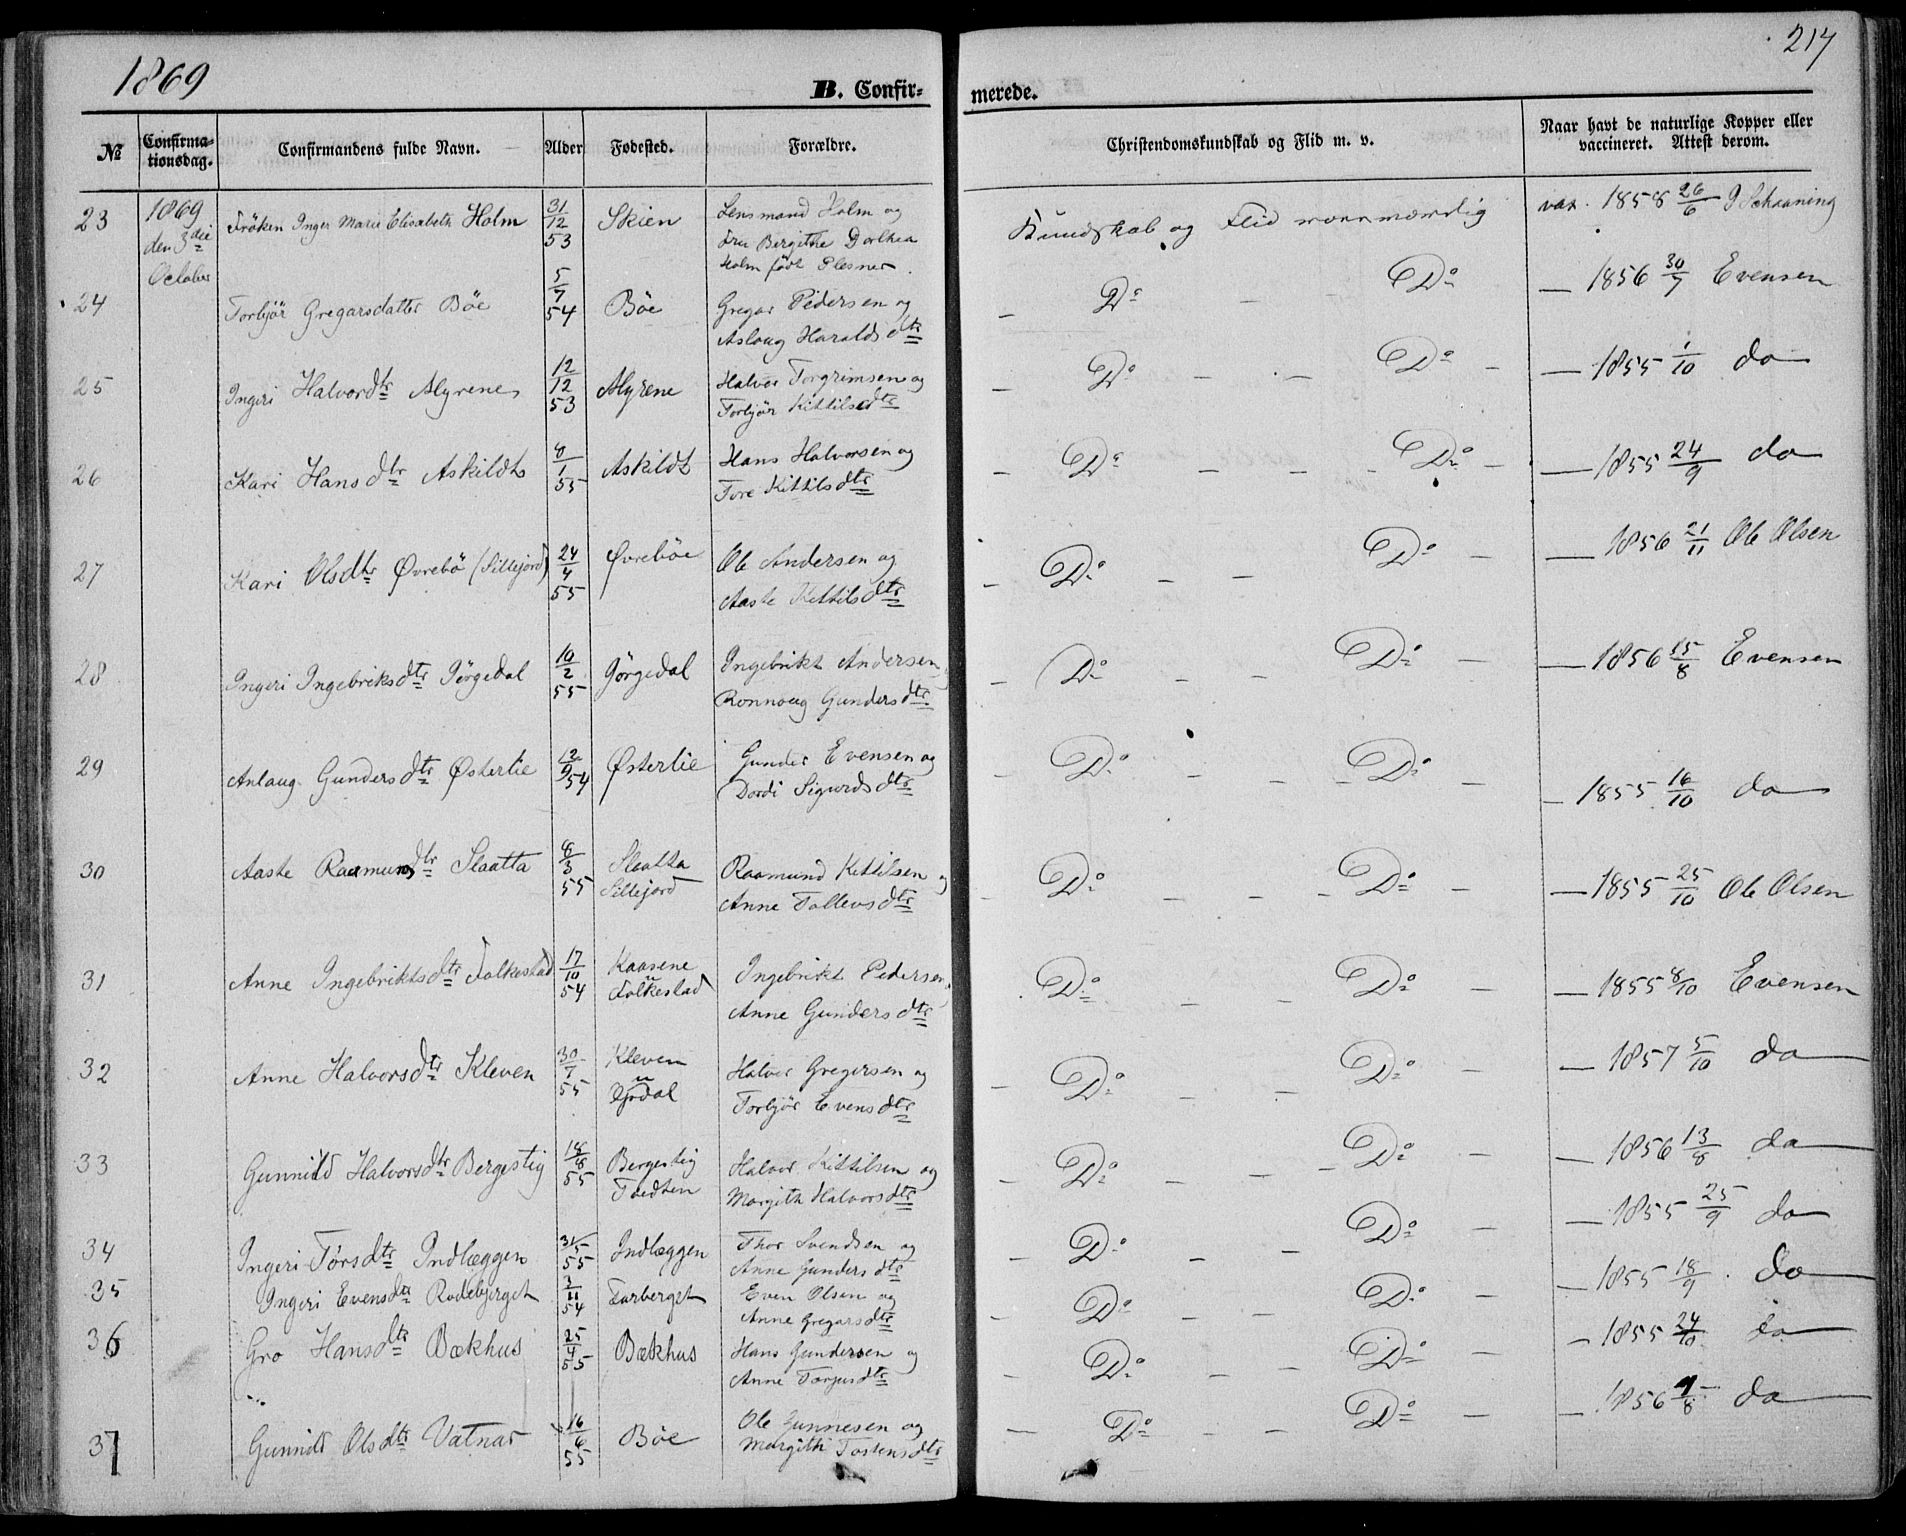 1869
217
B. Confir- merede.
№ Confirma-tionsdag. Confirmandens fulde Navn. Alder Fødested. Forældre. Christendomskundskab og Flid m. v. Naar havt de naturlige Kopper eller vaccineret. Attest derom.
23 1869 den 3die October Fröken Inger Marie Elisabeth Holm 31/12 53 Skien Lensmand Holm og Fru Bergithe Dorthea Holm född Plesner. Kundskab og Flid vac. 1858 26/6
24 Torbjör Gregarsdatter Böe 5/7 54 Böe Gregar Pedersen og Aslaug Haraldsdtr – Do – – Do – 1856 30/7 Evensen
25 Ingeri Halvordtr 12/12 53 Halvor Torgrimsen og Torbjör Kittilsdtr – Do – – Do – – 1855 1/10 do
26 Kari Hansdtr Askildts 8/1 55 Askildt Hans Halvorsen og Tore Kittilsdtr – Do – – – Do – – 1855 24/9 do
27 Kari Olsdtr Øvrebö (Sillejord) 24/4 55 Øvreböe Ole Andersen og Aaste Kittilsdtr – Do – – Do – – 1856 21/11 Ole Olsen
28 Ingeri Ingebriksdtr Görgedal 10/2 55 Görgedal Ingebrikt Andersen, Ronnoug Gundersdtr – Do – – Do – – 1856 15/8 Evensen
29 Anlaug Gundersdtr Østerlie 12/9 54 Østerlie Gunder Evensen og Dordi Sigurdsdtr – Do – – Do – – 1855 16/10 do
30 Aaste Raamundsdtr Slaatta 8/3 55 Slaatta Sillejord Raamund Kittilsen og Anne Tollevsdtr – Do – – – Do – – 1855 25/10 Ole Olsen
31 Anne Ingebriktsdtr Folkestad 17/10 54 Kaasene u Folkestad Ingebrikt Pedersen, Anne Gundersdtr Do – – Do – – 1855 8/10 Evensen
32 Anne Halvorsdtr Kleven 30/7 55 Kleven u Halvor Gregersen og Torbjör Evensdtr – Do – – Do – – 1857 5/10 do
33 Gunnild Halvorsdtr Bergestig 55 Bergestig Halvor Kittilsen og Margith Halvorsdtr – Do – – – Do – – 1856 13/8 do
34 Ingeri Torsdtr Indlæggen 31/5 55 Indlæggen Thor Svendsen og Anne Gundersdtr – Do – – Do – – 1855 25/9 do
35 Ingeri Evensdtr Rodebjerget 3/11 54 Even Olsen og Anne Gregarsdtr – Do – – Do – – 1855 18/9 do
36 Gro Hansdtr Bækhus 25/4 55 Bækhus Hans Gundersen og Anne Torjusdtr – Do – – Do – – 1855 24/10 do
37 Gunnild Olsdtr Vatnar 16/6 55 Böe Ole Gunnesen og Margith Tostensdtr – Do – – Do – – 1856 do